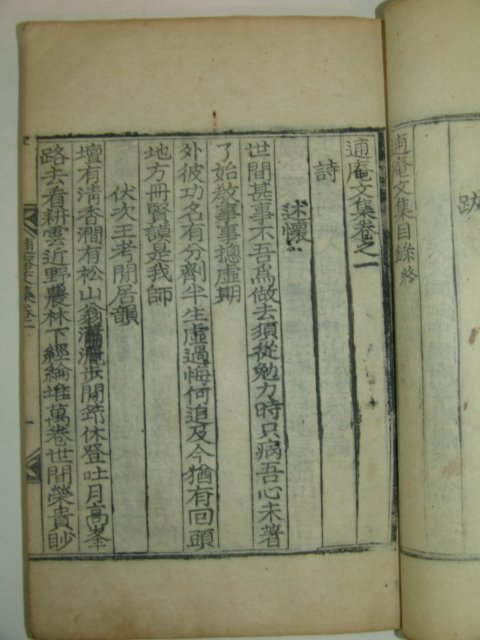 跋
逋庵文集目錄終
逋庵文集卷之一
詩
述懷
世間甚事不吾爲做去須從勉力時只病吾心未著
了始敎事事摠虛期
外彼功名有分劑半生虛過悔何追及今猶有回頭
地方冊賢謨是我師
伏次王考閒居韻
壇有淸香澗有松山翁瀟灑步閒節休登吐月高峯
路去看耕雲近野農林下經綸堆萬卷世間榮貴眇